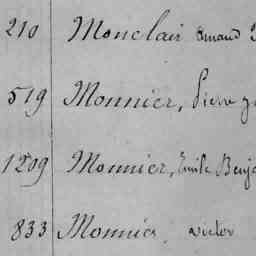 210 Monclair Armand
519 Monnier, Pierre
1209 Monnier, Emile Benj
833 Monnier, victor